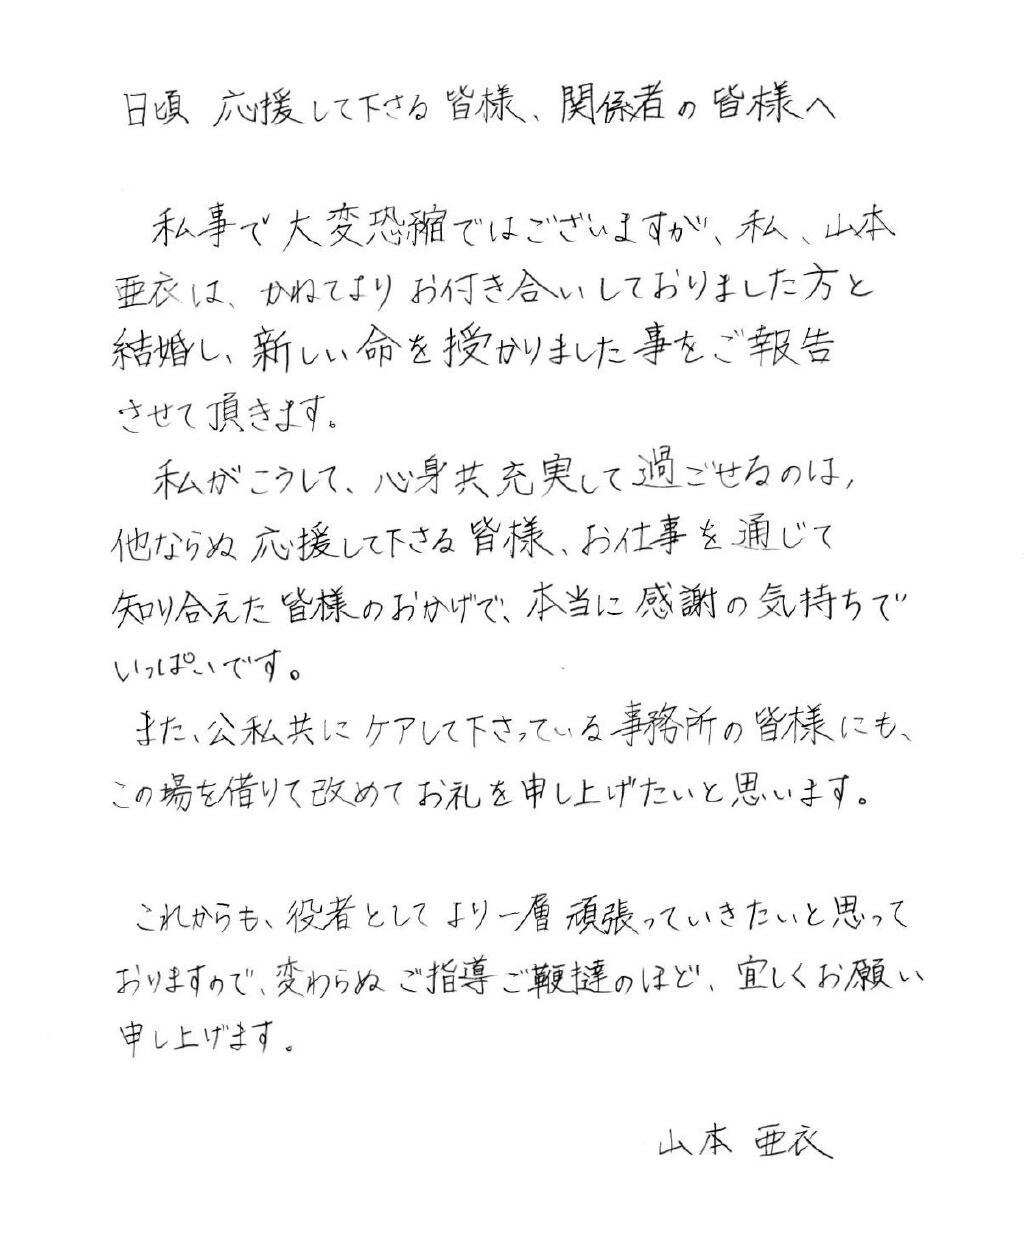 日頃 応援して下さる 皆様、関係者の 皆様へ
私事で 大変恐縮ではございますが、私、山本
亜衣は、かねてより お付き合いしておりました方と
結婚し、新しい命を授かりました事をご報告
させて頂きます。
私がこうして、心身共充実して過ごせるのは、
他ならぬ 応援して下さる 皆様、お仕事を通じて
知り合えた皆様のおかげで、本当に感謝の気持ちで
いっぱいです。
また、公私共に ケアして下さっている事務所の皆様にも、
この場を借りて改めてお礼を申し上げたいと思います。
これからも、役者として より一層 頑張っていきたいと思って
おりますので、変わらぬ ご指導ご鞭撻のほど、宜しくお願い
申し上げます。
山本 亜衣